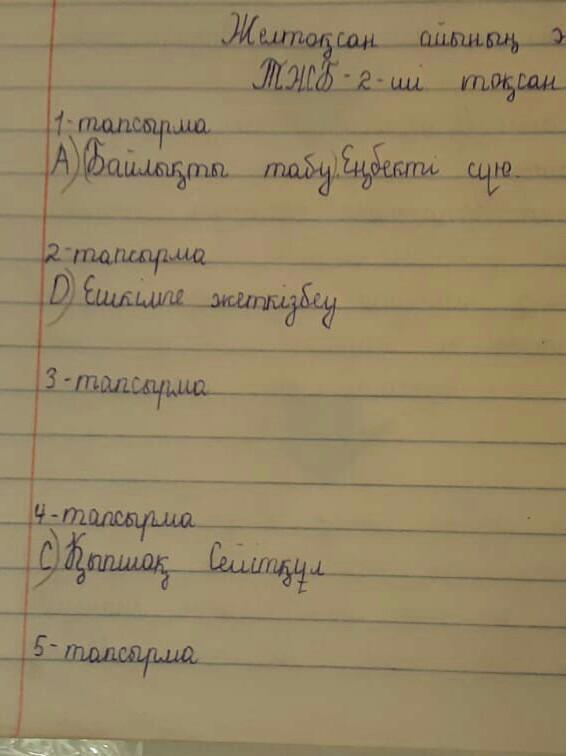 Желтоқсан айының
ТЖБ-2-ші тоқсан
1-тапсырма
А) (Байлықты табу). Еңбекті сүю.
2-тапсырма
D) Ешкімге жеткізбеу
3-тапсырма
4-тапсырма
С) Қыпшақ Сейітқұл
5-тапсырма